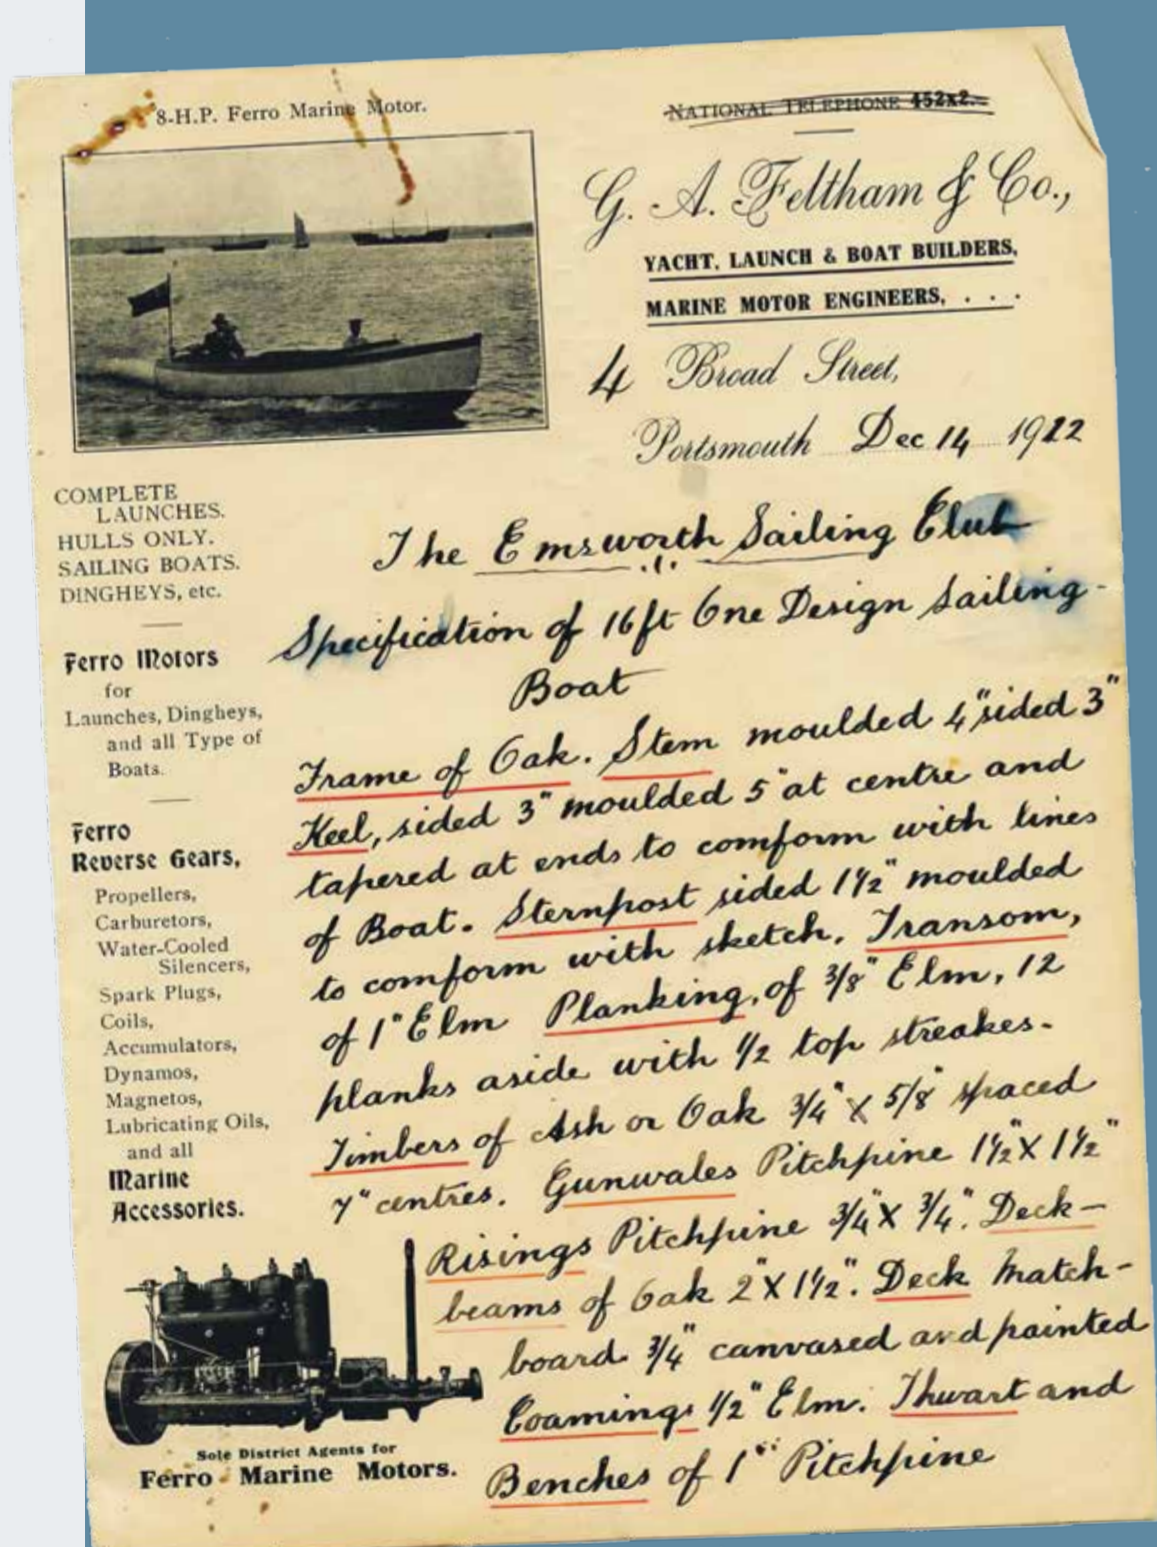 8-H.P. Ferro Marine Motor.
NATIONAL TELEPHONE 452x2.
G. A. Feltham & Co.,
YACHT, LAUNCH & BOAT BUILDERS,
MARINE MOTOR ENGINEERS, . . .
4 Broad Street,
Portsmouth Dec 14 1922
COMPLETE
LAUNCHES.
HULLS ONLY.
SAILING BOATS.
DINGHEYS, etc.
Ferro Motors
for
Launches, Dingheys,
and all Type of
Boats.
Ferro
Reverse Gears,
Propellers,
Carburetors,
Water-Cooled
Silencers,
Spark Plugs,
Coils,
Accumulators,
Dynamos,
Magnetos,
Lubricating Oils,
and all
Marine
Accessories.
Sole District Agents for
Ferro Marine Motors.
The Emsworth Sailing Club
Specification of 16ft One Design Sailing-
Boat
Frame of Oak. Stem moulded 4" sided 3"
Keel, sided 3" moulded 5" at centre and
tapered at ends to comform with lines
of Boat. Sternpost sided 1½" moulded
to comform with sketch. Transom,
of 1" Elm Planking, of 3/8" Elm, 12
planks aside with ½ top streakes-
Timbers of Ash or Oak 3/4" X 5/8" spaced
7" centres. Gunwales Pitchpine 1½" X 1½"
Risings Pitchpine 3/4" X 3/4". Deck-
beams of Oak 2" X 1½". Deck Match-
board 3/4" canvased and painted
Coamings ½" Elm. Thwart and
Benches of 1" Pitchpine